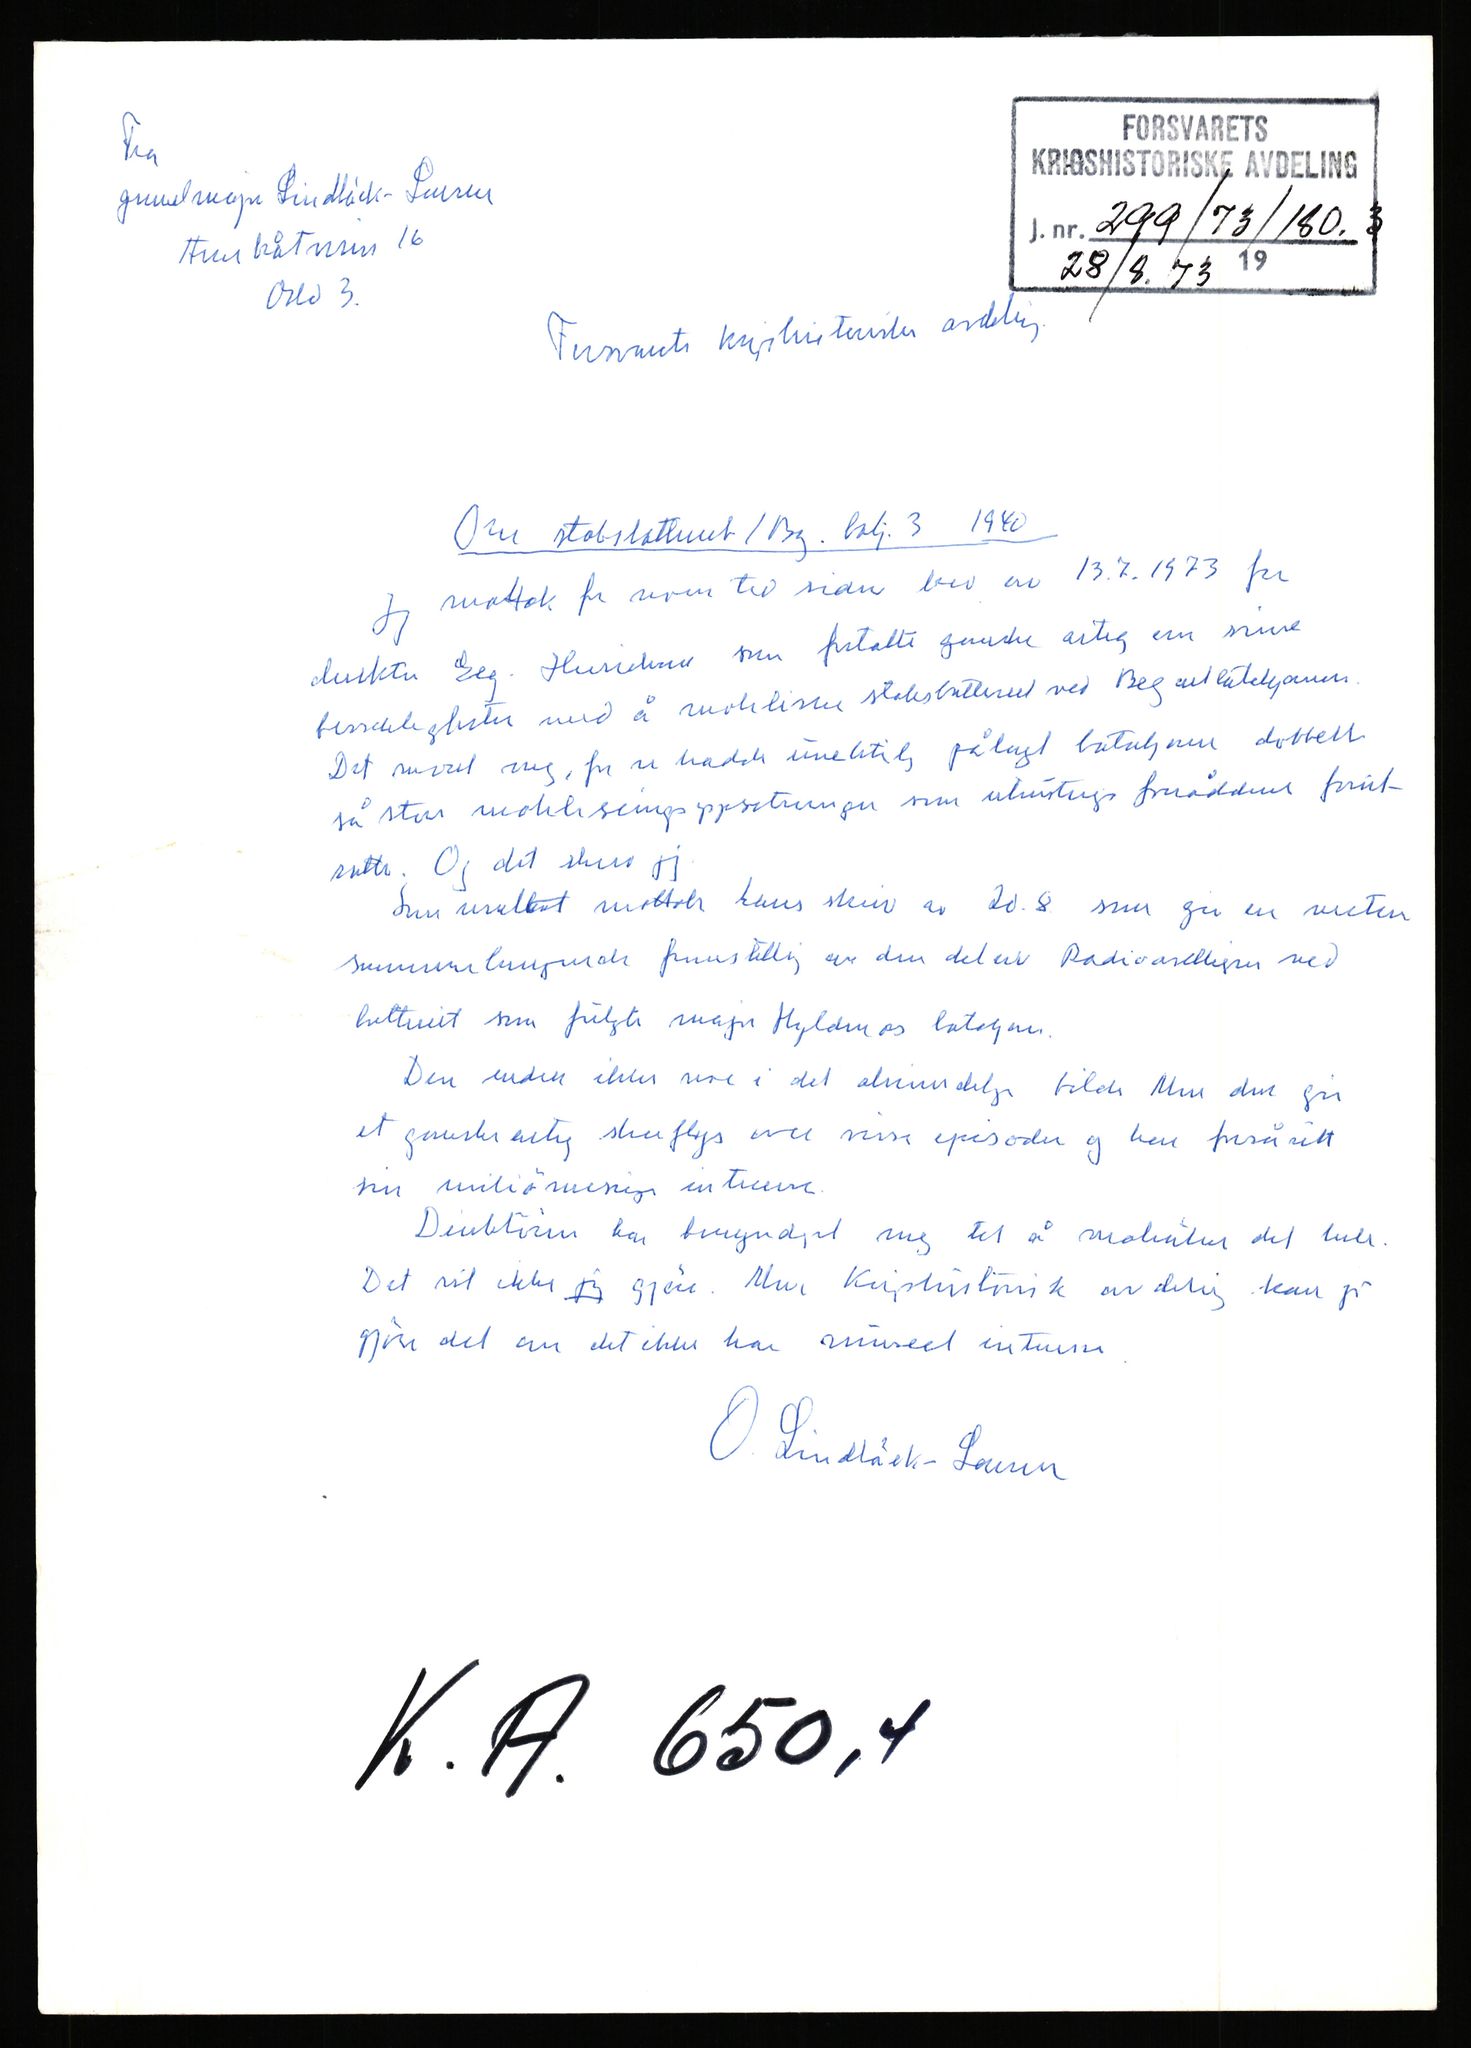 Fra
generalmajor Lindbäck-Larsen
16
Oslo 3.
FORSVARETS
KRIGSHISTORISKE AVDELING
J. nr. 299/73/180.3
28/8.73 19
Forsvarets krigshistoriske avdeling.
Om stabsbatteriet/Bg. batj. 3 1940
Jeg mottok for noen tid siden brev av 13.7.1973 fra
direktør som fortalte ganske artig om sine
besværligheter med å mobilisere stabsbatteriet ved Bergartilleribataljonen.
Det moret meg, for vi hadde unektelig pålagt bataljonen dobbelt
så store mobiliseringsoppsetninger som utrustnings forråddene forut-
satte. Og det skrev jeg.
Som resultat mottok hans skriv av 20.8. som gir en
sammenhengende fremstilling av den del av Radioavdelingen ved
batteriet som fulgte major Hyldmos bataljon.
Den endrer ikke noe i det alminnelige bilde. Men den gir
et ganske artig streiflys over visse episoder og har forsåvitt
sin miliømessige interesse.
Direktøren har bemyndiget meg til å makulere det hele.
Det vil ikke jeg gjøre. Men Krigshistorisk avdeling kan jo
gjøre det om det ikke har museal interesse.
O. Lindbäck-Larsen
K.A. 650,4